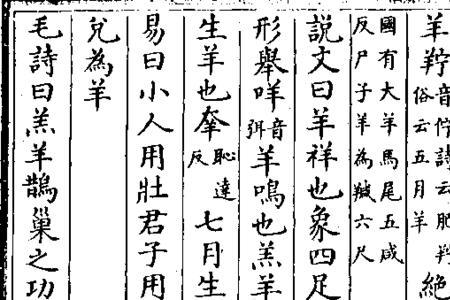 羊羜音佇詩云肥羜俗云五月羊絶
國有大羊馬尾五咸
反尸子羊為羬六尺
説文曰羊祥也象四足
形舉咩音弭羊鳴也羔羊
生羊也羍恥達反七月生
易曰小人用壯君子用
兌為羊
毛詩曰羔羊鵲巢之功